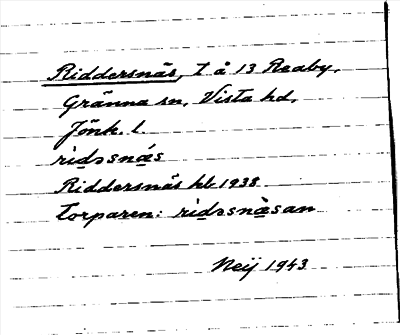 Riddersnäs, t å 13 Reaby,
Gränna sn, Vista hd,
Jönk. l.
ridəsnás
Riddersnäs hb 1938
torparen: ridəsnàsan
Neij 1943